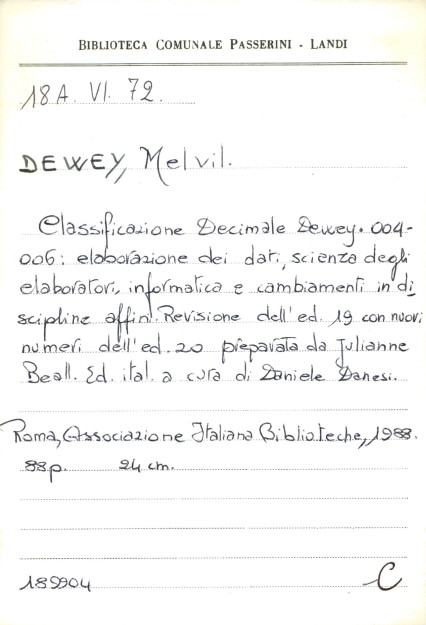 BIBLIOTECA COMUNALE PASSERINI - LANDI
18A. VI. 72.
DEWEY, Melvil.
Classificazione Decimale Dewey. 004-
006: elaborazione dei dati, scienza degli
elaboratori, informatica e cambiamenti in di
scipline affini. Revisione dell'ed. 19 con nuovi
numeri dell'ed. 20 preparata da Julianne
Beall. Ed. ital. a cura di Daniele Danesi.
Roma, Associazione Italiana Biblioteche, 1988.
88p. 24 cm.
189904 C